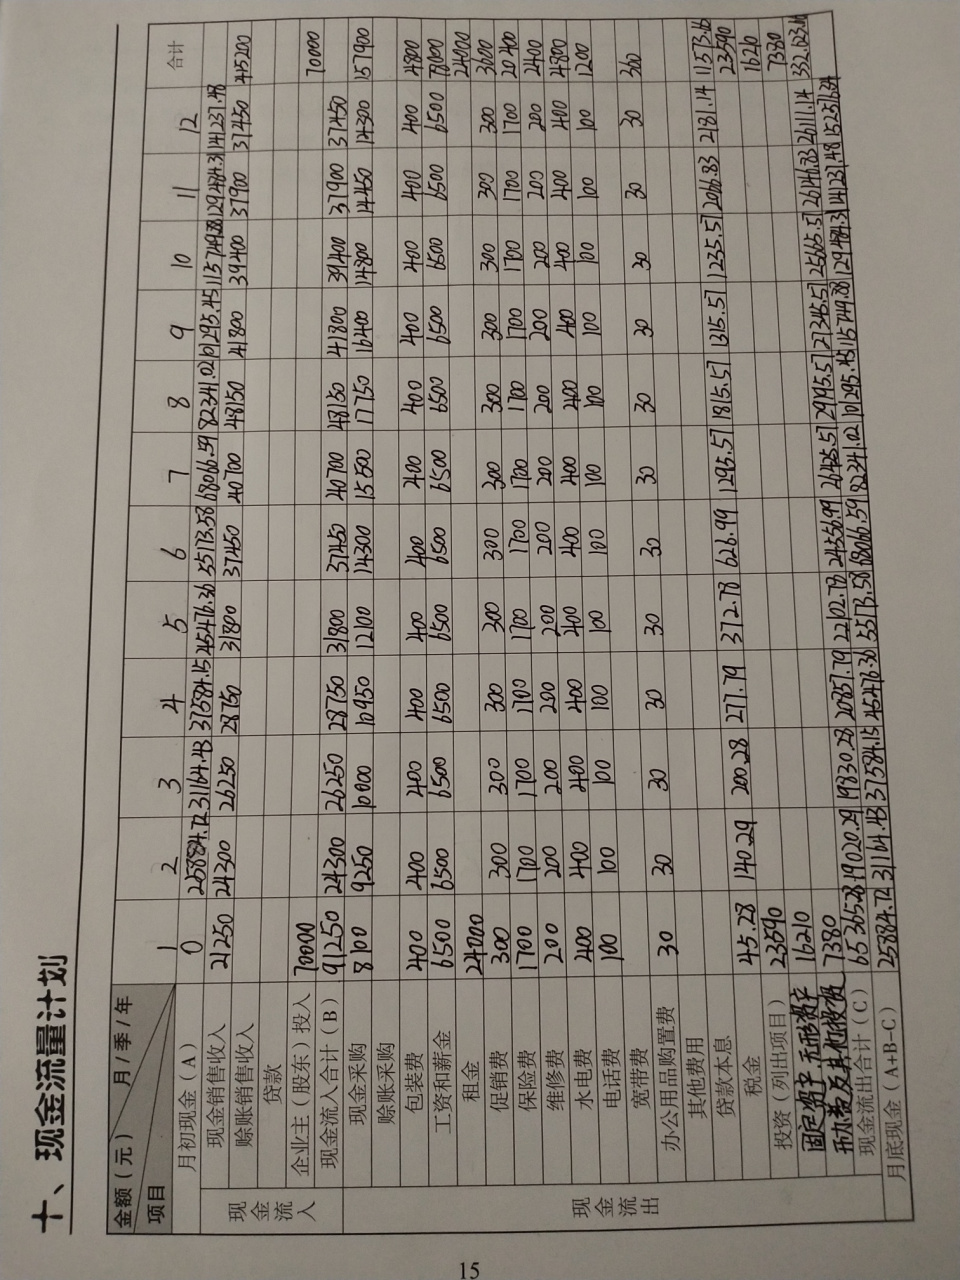 十、现金流量计划
金额（元） 月/季/年 项目 1 2 3 4 5 6 7 8 9 10 11 12 合计
现金流入
月初现金（A） 0 25884.72 31164.43 37584.15 45476.36 55173.58 68066.59 82341.02 101295.45 115749.88 129484.31 141237.48
现金销售收入 21250 24300 26250 28750 31800 37450 40700 48150 41800 39400 37900 37450 415200
赊账销售收入
贷款
企业主（股东）投入 70000 70000
现金流入合计（B） 91250 24300 26250 28750 31800 37450 40700 48150 41800 39400 37900 37450
现金流出
现金采购 8100 9250 10000 10950 12100 14300 15500 17750 16400 14800 14450 14300 157900
赊账采购
包装费 400 400 400 400 400 400 400 400 400 400 400 400 4800
工资和薪金 6500 6500 6500 6500 6500 6500 6500 6500 6500 6500 6500 6500 78000
租金 24000 24000
促销费 300 300 300 300 300 300 300 300 300 300 300 300 3600
保险费 1700 1700 1700 1700 1700 1700 1700 1700 1700 1700 1700 1700 20400
维修费 200 200 200 200 200 200 200 200 200 200 200 200 2400
水电费 400 400 400 400 400 400 400 400 400 400 400 400 4800
电话费 100 100 100 100 100 100 100 100 100 100 100 100 1200
宽带费
办公用品购置费 30 30 30 30 30 30 30 30 30 30 30 30 360
其他费用
贷款本息
税金 45.28 140.29 200.28 277.79 372.78 626.99 1295.57 1815.57 1315.57 1235.57 2066.83 2181.14 11573.16
投资（列出项目） 23590 23590
固定资产、无形资产 16210 1620
开办费及其他投资 7380 7380
现金流出合计（C） 65365.28 19020.29 19830.28 20857.79 22102.78 24556.99 26425.57 29195.57 27345.57 25665.57 26146.83 26111.14
月底现金（A+B-C） 25884.72 31164.43 37584.15 45476.36 55173.58 68066.59 82341.02 101295.45 115749.88 129484.31 141237.48
15